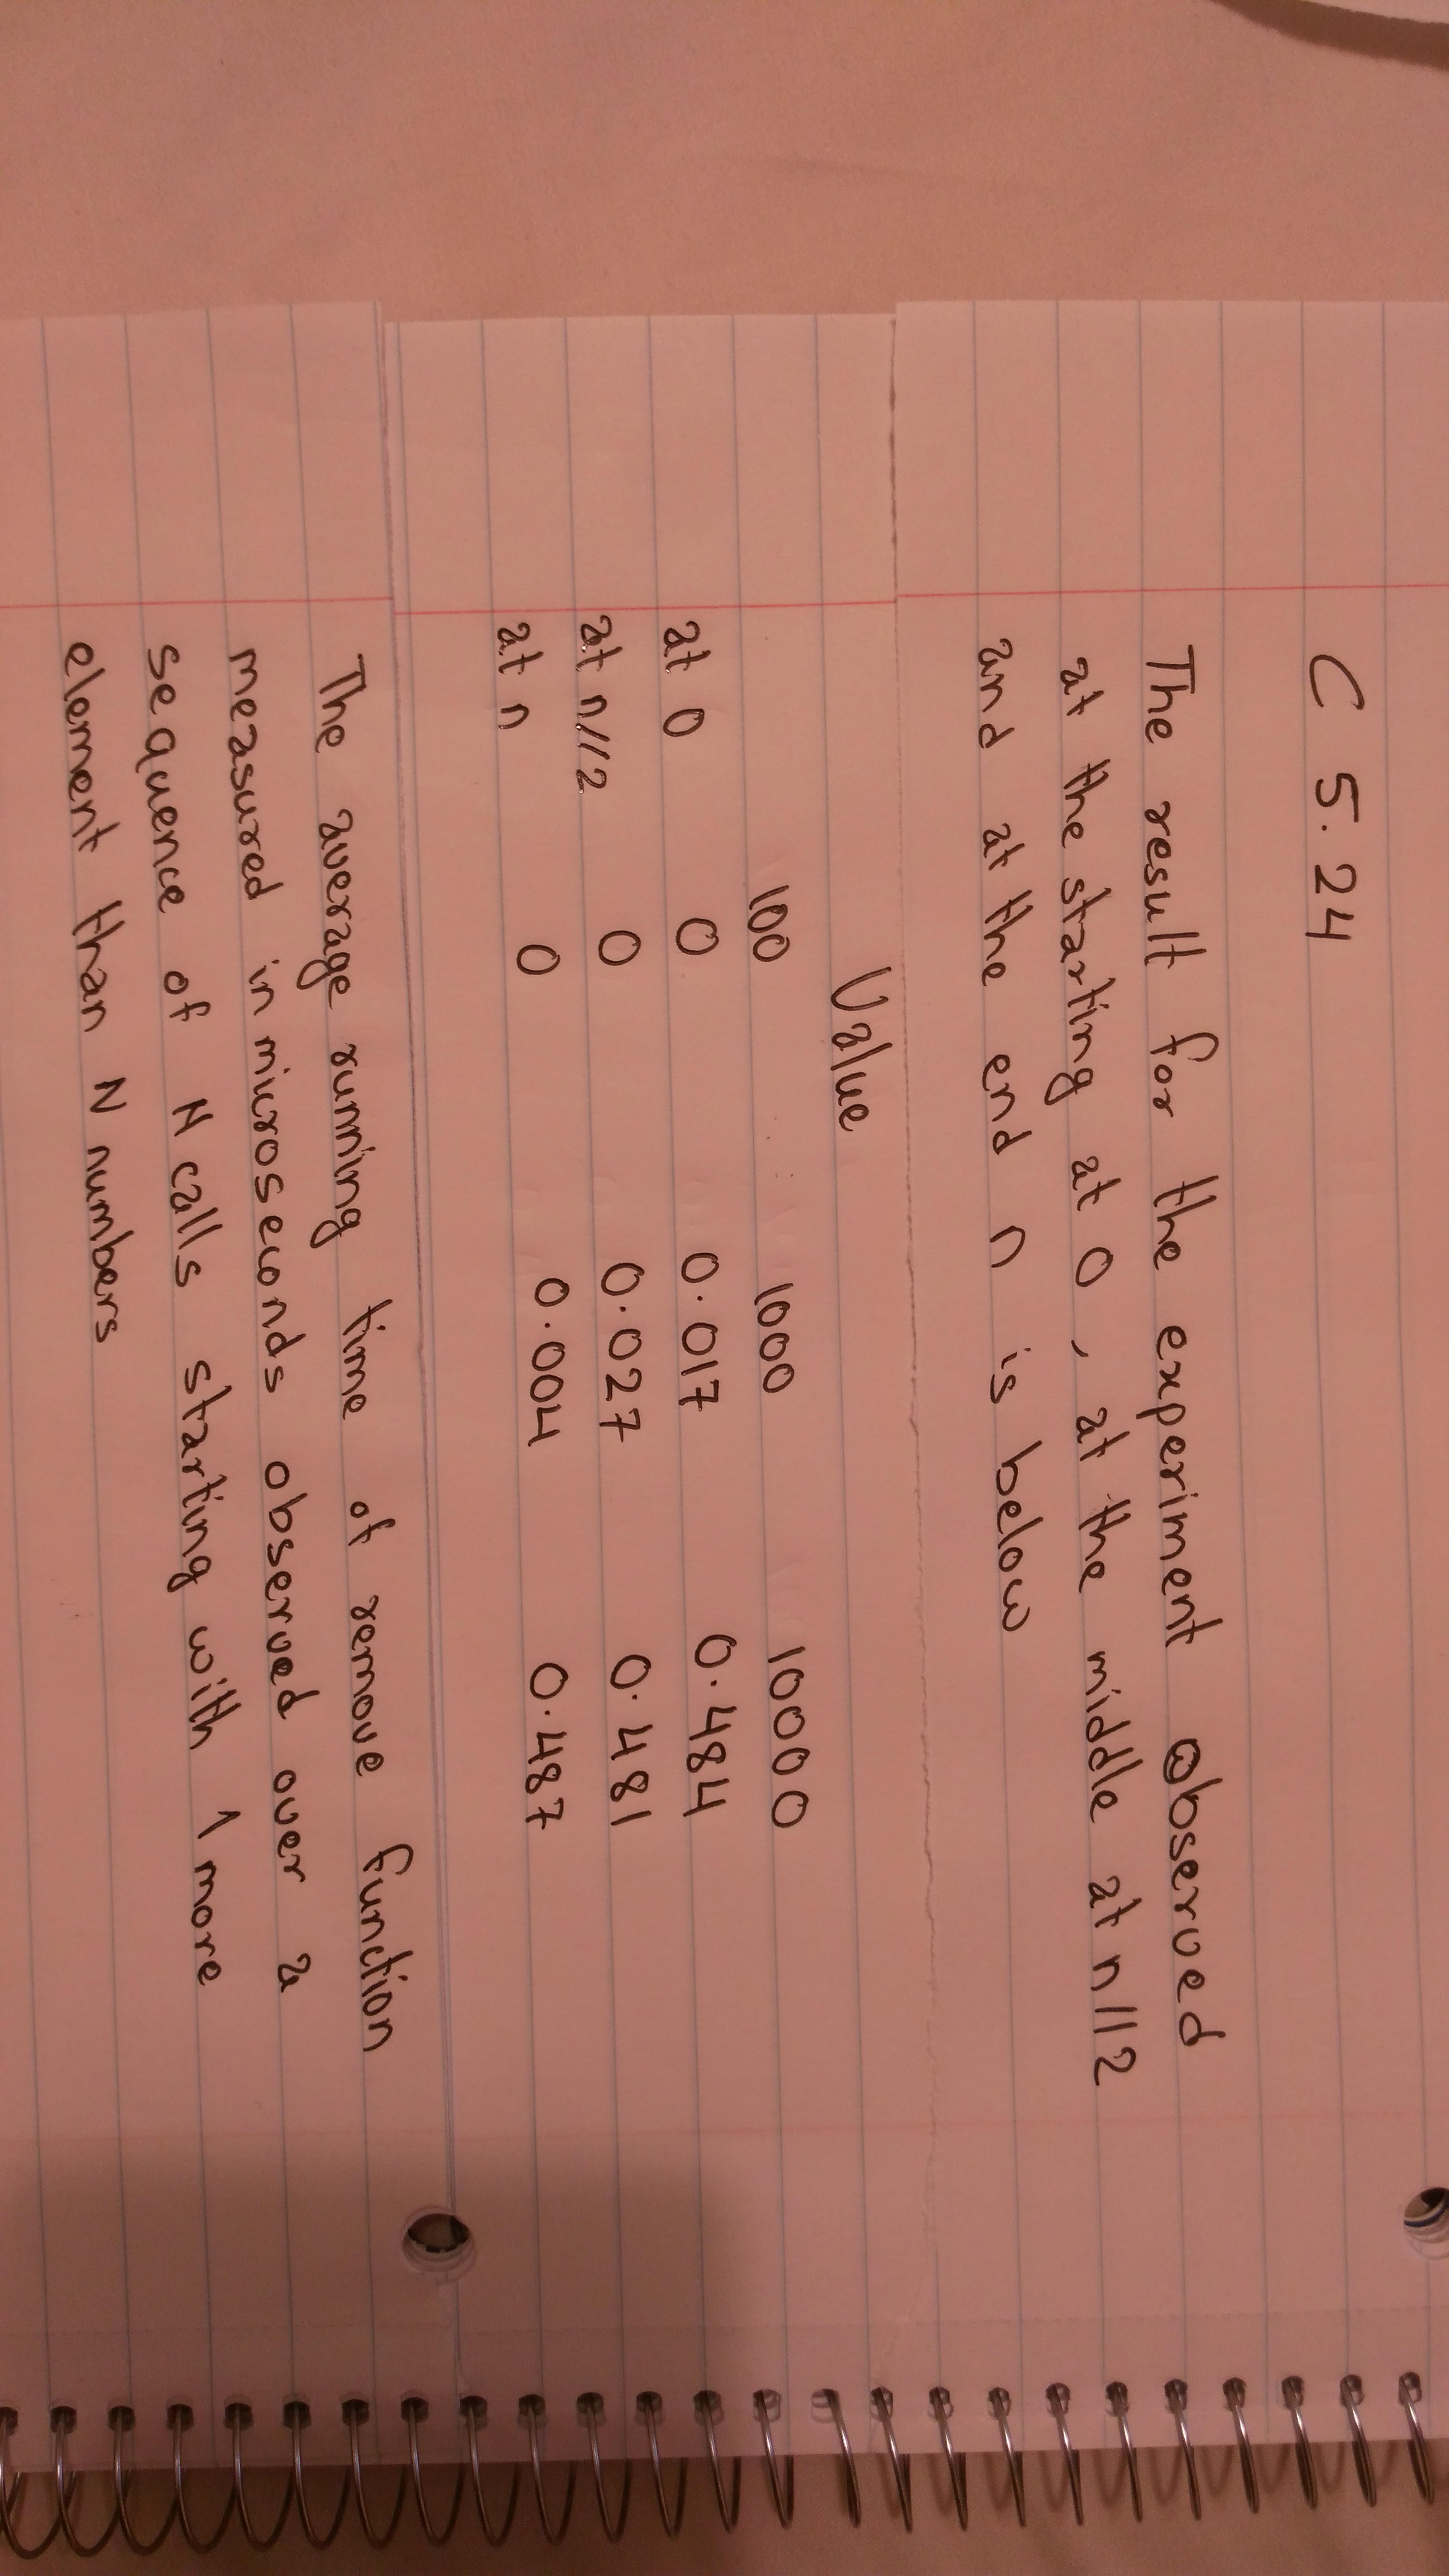 C 5.24
The result for the experiment observed
at the starting at 0, at the middle at n//2
and at the end n is below
Value
100 1000 10000
at 0 0 0.017 0.484
at n//2 0 0.027 0.481
at n 0 0.004 0.487
The average running time of remove function
measured in microseconds observed over a
sequence of N calls starting with 1 more
element than N numbers